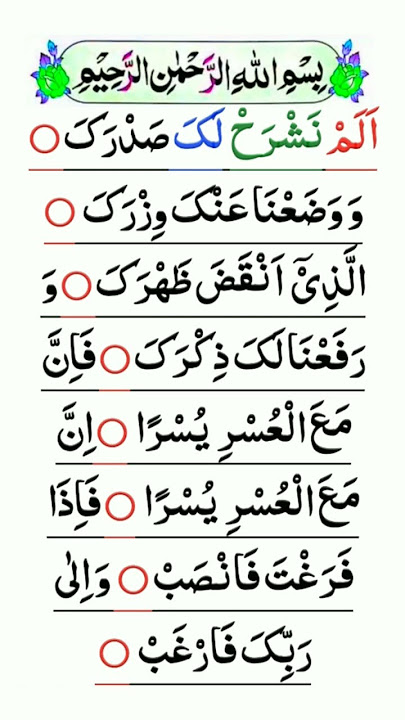 بِسْمِ اللهِ الرَّحْمٰنِ الرَّحِيْمِ
اَلَمْ نَشْرَحْ لَكَ صَدْرَكَ ○
وَوَضَعْنَا عَنْكَ وِزْرَكَ ○
الَّذِيْٓ اَنْقَضَ ظَهْرَكَ ○ وَ
رَفَعْنَا لَكَ ذِكْرَكَ ○ فَاِنَّ
مَعَ الْعُسْرِ يُسْرًا ○ اِنَّ
مَعَ الْعُسْرِ يُسْرًا ○ فَاِذَا
فَرَغْتَ فَانْصَبْ ○ وَاِلٰى
رَبِّكَ فَارْغَبْ ○